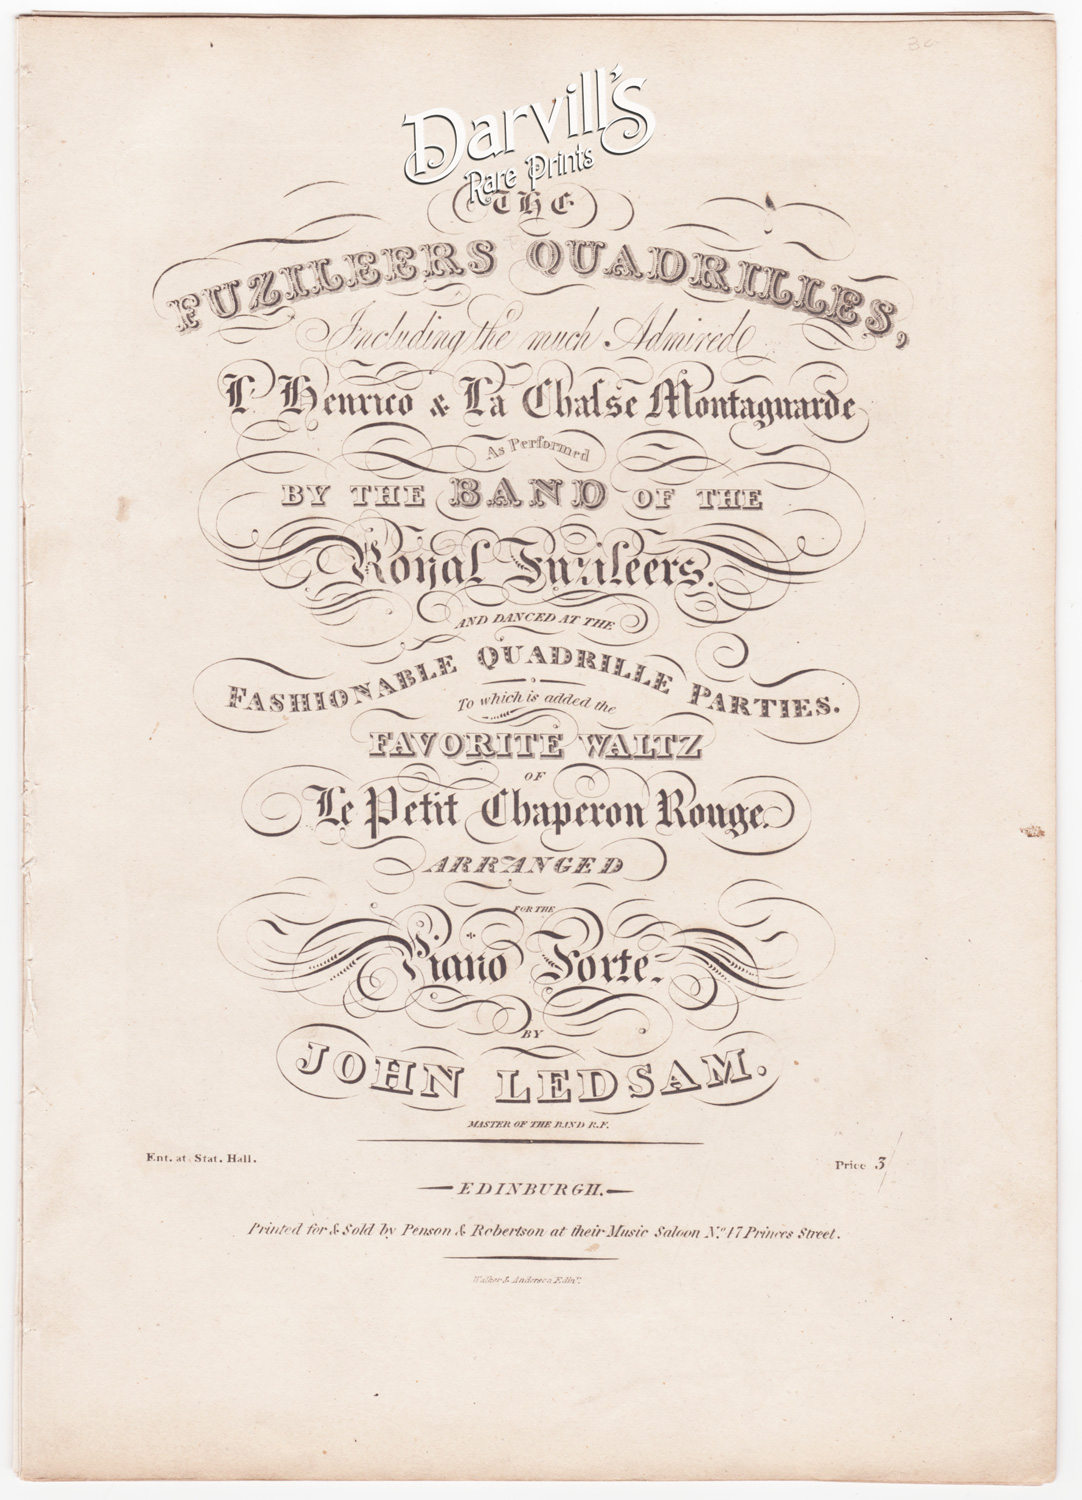 Darvill's
Rare Prints
THE
FUZILEERS QUADRILLES,
Including the much Admired
L'Henrico & La Chaſse Montagnarde
As Performed
BY THE BAND OF THE
Royal Fuzileers.
AND DANCED AT THE
FASHIONABLE QUADRILLE PARTIES.
To which is added the
FAVORITE WALTZ
OF
Le Petit Chaperon Rouge.
ARRANGED
FOR THE
Piano Forte.
BY
JOHN LEDSAM.
MASTER OF THE BAND R.F.
Ent. at Stat. Hall.
Price 3/
EDINBURGH.
Printed for & Sold by Penson & Robertson at their Music Saloon No. 47 Princes Street.
Walker & Anderson Edinr.